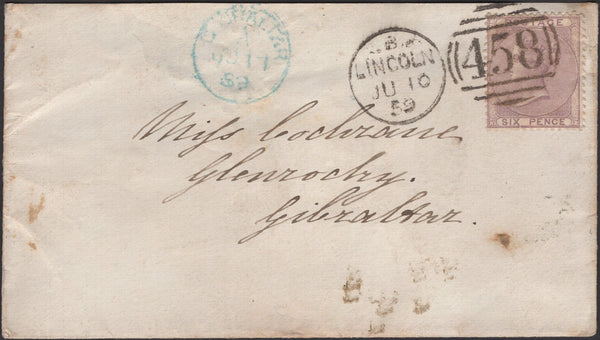 GIBRALTAR
JU 17
59
B
LINCOLN
JU 10
59
458
POSTAGE
SIX PENCE
Miss Cochrane
Glenrocky.
Gibraltar.